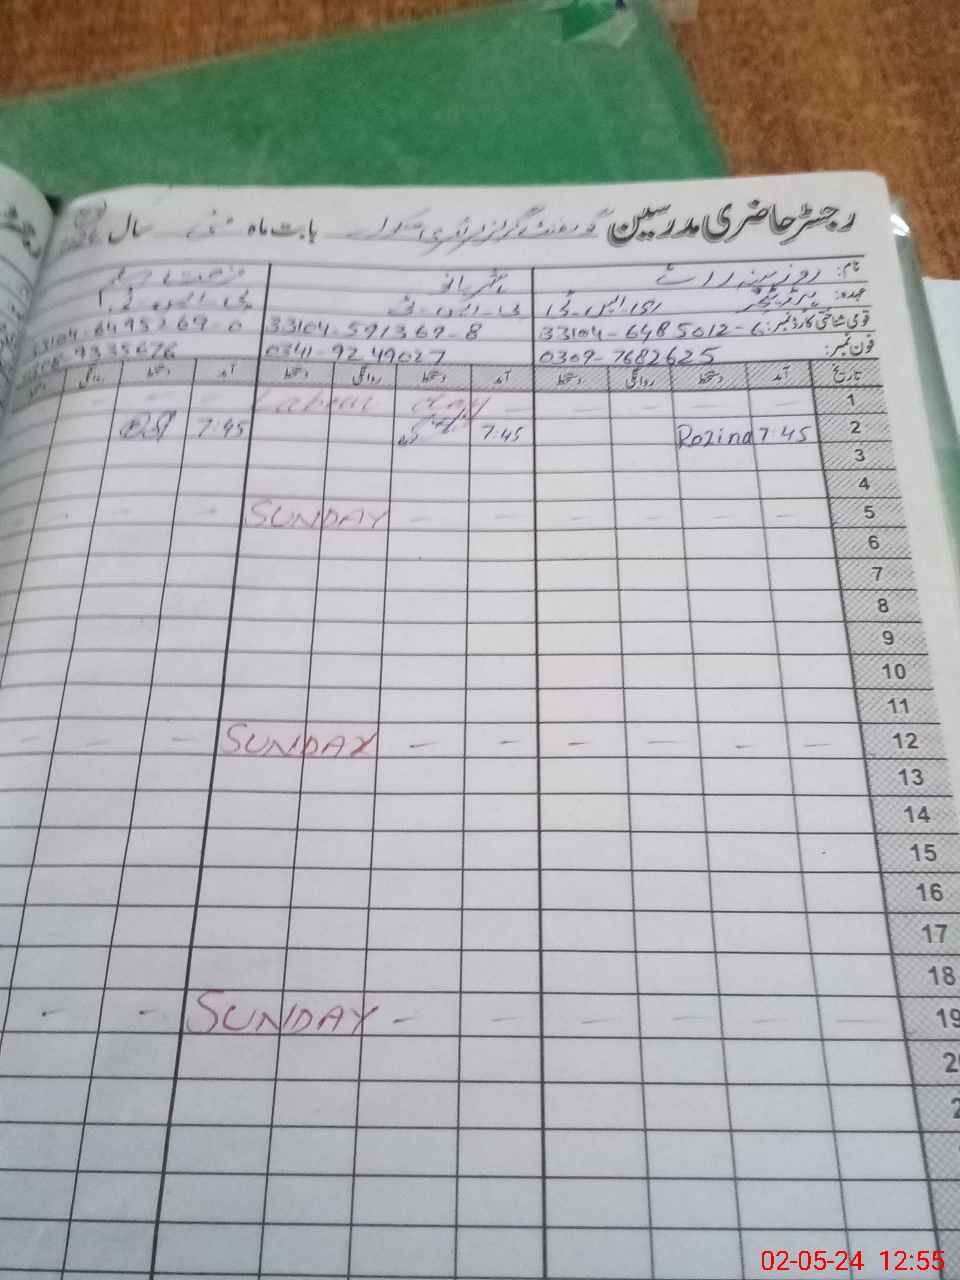 رجسٹر حاضری مدرسین گورنمنٹ گرلز پرائمری سکول بابت ماہ مئی سال
نام: روزینہ
عہدہ: ای ایس ٹی پی ایس ٹی
قومی شناختی کارڈ نمبر: 33104-6485012-6 33104-591369-8 33104-6495769-0
فون نمبر: 0309-7682625 0341-9249027 9335676
تاریخ آمد دستخط روانگی دستخط آمد دستخط روانگی دستخط آمد دستخط روانگی
1 Labour day
2 7:45 Rozina 7:45 7:45
3
4
5 SUNDAY
6
7
8
9
10
11
12 SUNDAY
13
14
15
16
17
18
19 SUNDAY
02-05-24 12:55